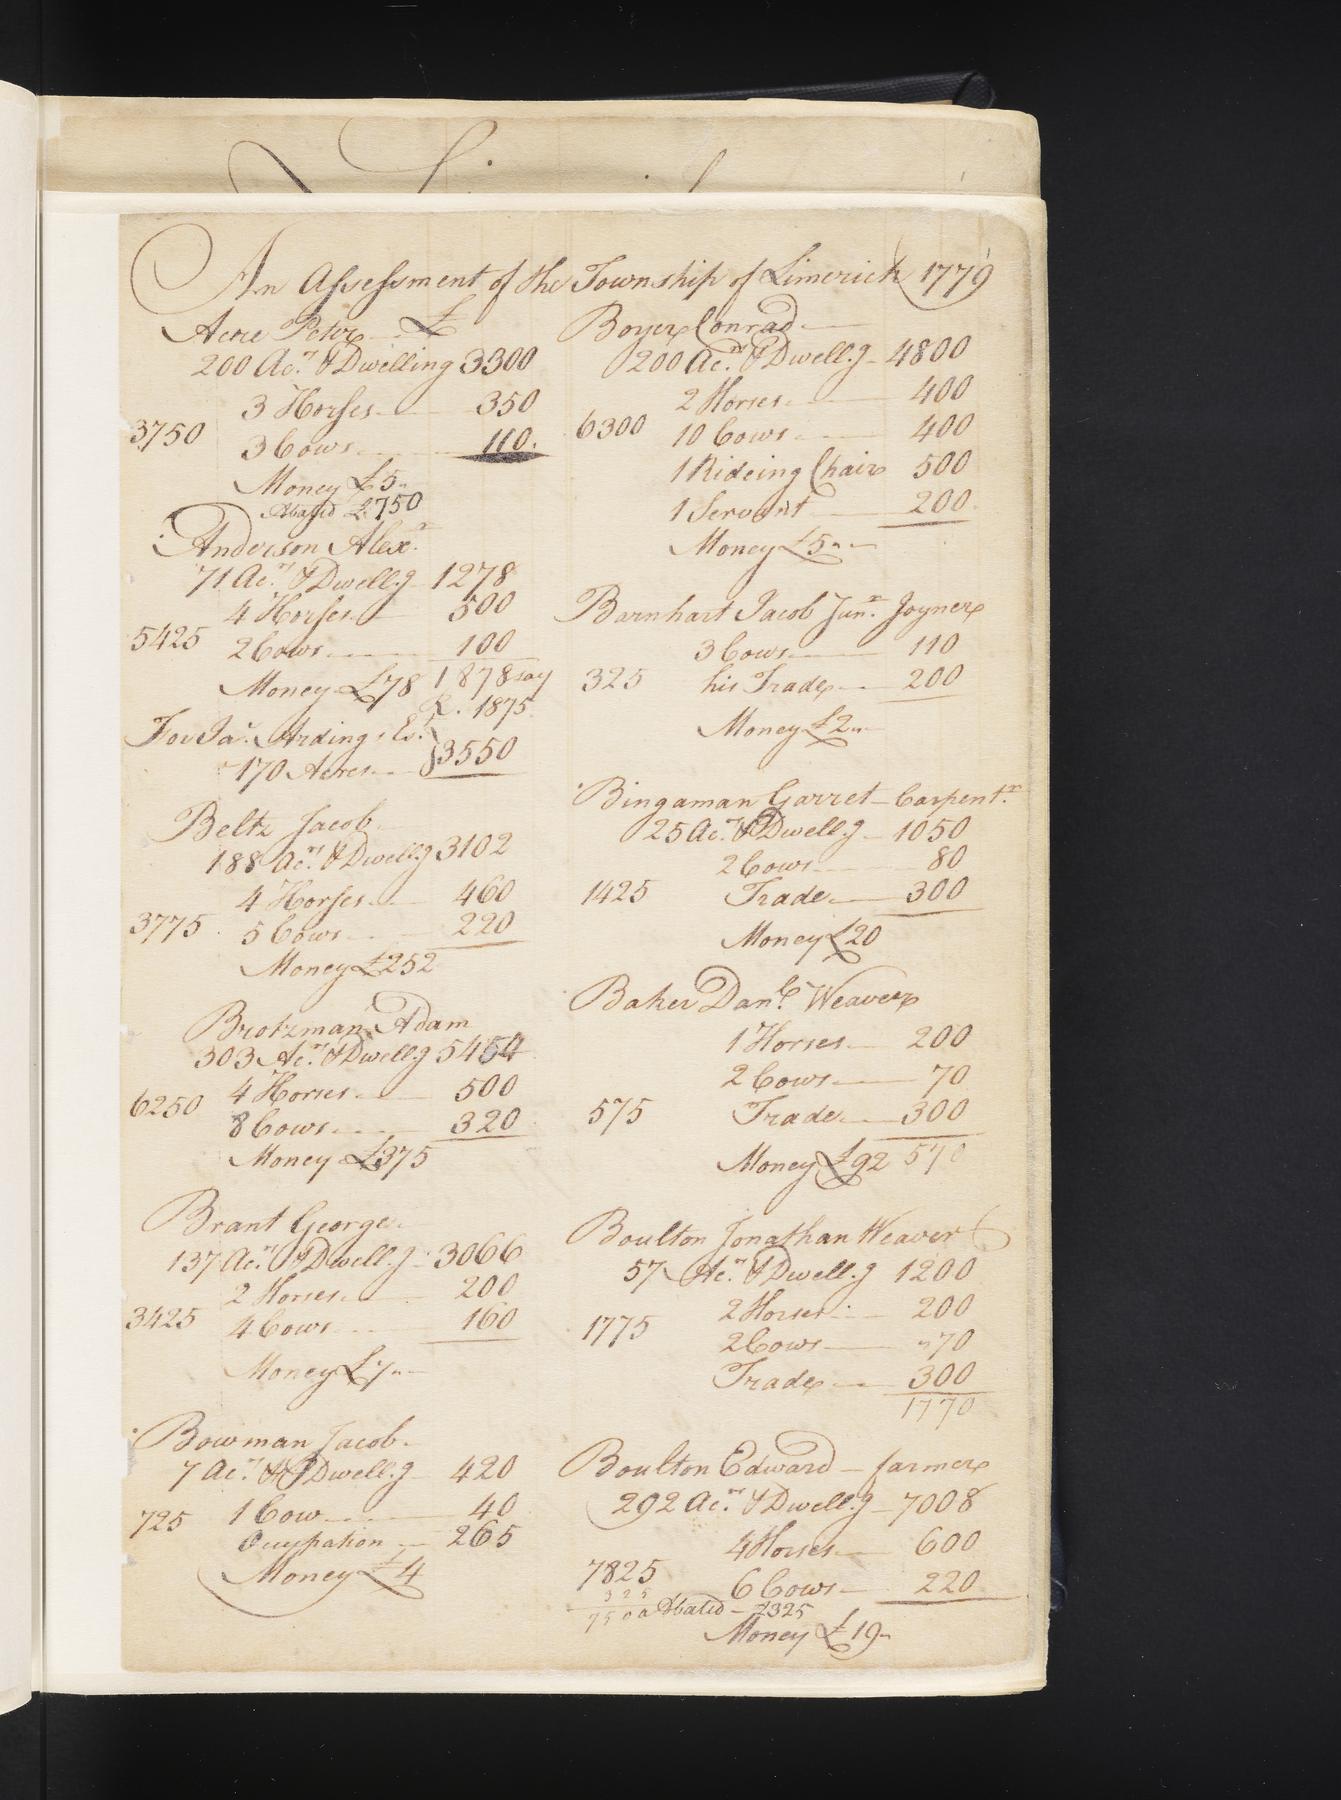 An Assessment of the Township of Limerick 1779
Acre Peter £
200 Acrs & Dwelling 3300
3 Horses 350
3750 3 Cows 110.
Money £5
Abated £750
Anderson Alexr
71 Acrs & Dwell.g 1278
4 Horses 500
5425 2 Cows 100
Money £78 1878 say
R. 1875
For Ja. Arding Es.
170 Acres 3550
Beltz Jacob
188 Acrs & Dwell.g 3102
4 Horses 460
3775 5 Cows 220
Money £252
Brotzman Adam
303 Acrs & Dwell.g 5454
4 Horses 500
6250 8 Cows 320
Money £375
Brant George
137 Acrs & Dwell.g 3066
2 Horses 200
3425 4 Cows 160
Money £7
Bowman Jacob
7 Acrs & Dwell.g 420
725 1 Cow 40
Occupation 265
Money £4
Boyer Conrad
200 Acrs & Dwell.g 4800
2 Horses 400
6300 10 Cows 400
1 Rideing Chair 500
1 Servant 200
Money £5
Barnhart Jacob Junr Joyner
3 Cows 110
325 his Trade 200
Money £2
Bingaman Garret Carpentr
25 Acrs & Dwell.g 1050
2 Cows 80
1425 Trade 300
Money £20
Baker Danl Weaver
1 Horses 200
2 Cows 70
575 Trade 300
Money £92 570
Boulton Jonathan Weaver
57 Acrs & Dwell.g 1200
2 Horses 200
1775 2 Cows 70
Trade 300
1770
Boulton Edward farmer
292 Acrs & Dwell.g 7008
4 Horses 600
7825 6 Cows 220
325
7500 Abated £325
Money £19